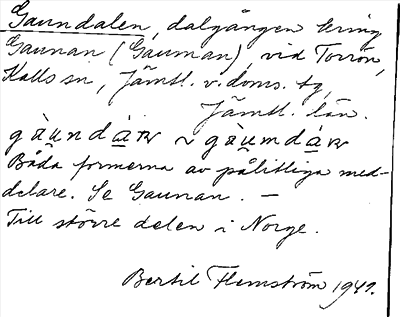 Gaundalen, dalgången kring
Gaunan (Gauman), vid Torrön,
Kalls sn, Jämtl. v. doms. tg,
Jämtl. län.
gàundàɽ ~ gàumdàɽ
Båda formerna av pålitliga med-
delare. Se Gaunan. —
Till större delen i Norge.
Bertil Flemström 1942.